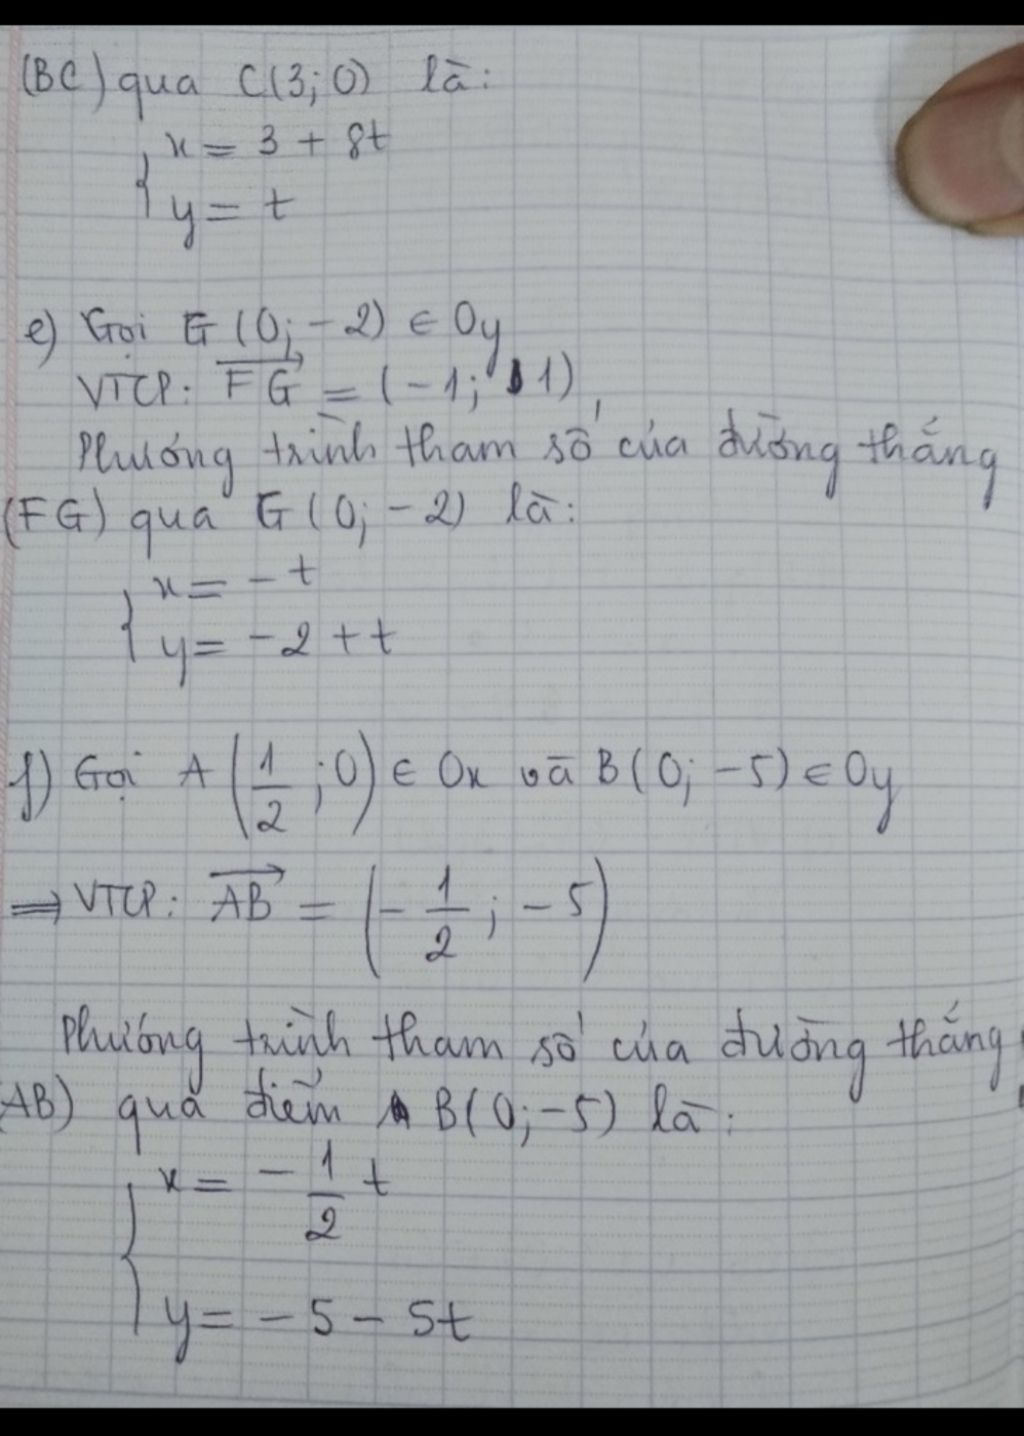 (BC) qua C(3;0) là:
{ x = 3 + 8t
y = t
e) Gọi G (0; -2) ∈ Oy
VTCP: FG = (-1; 1)
Phương trình tham số của đường thẳng
(FG) qua G(0; -2) là:
{ x = - t
y = -2 + t
f) Gọi A (1/2 ; 0) ∈ Ox và B(0; -5) ∈ Oy
⇒ VTCP: AB = (-1/2 ; -5)
Phương trình tham số của đường thẳng
(AB) qua điểm B(0; -5) là:
{ x = - 1/2 t
y = - 5 - 5t